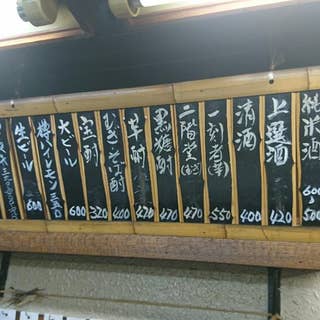 純米酒 600〜500
上選酒 420
清酒 400
一刻者(芋) 550
二階堂(むぎ) 470
黒糖酎 470
芋酎 470
むぎ・そば酎 400
宝酎 320
大ビール 600
樽ハイレモン 350
生ビール 600